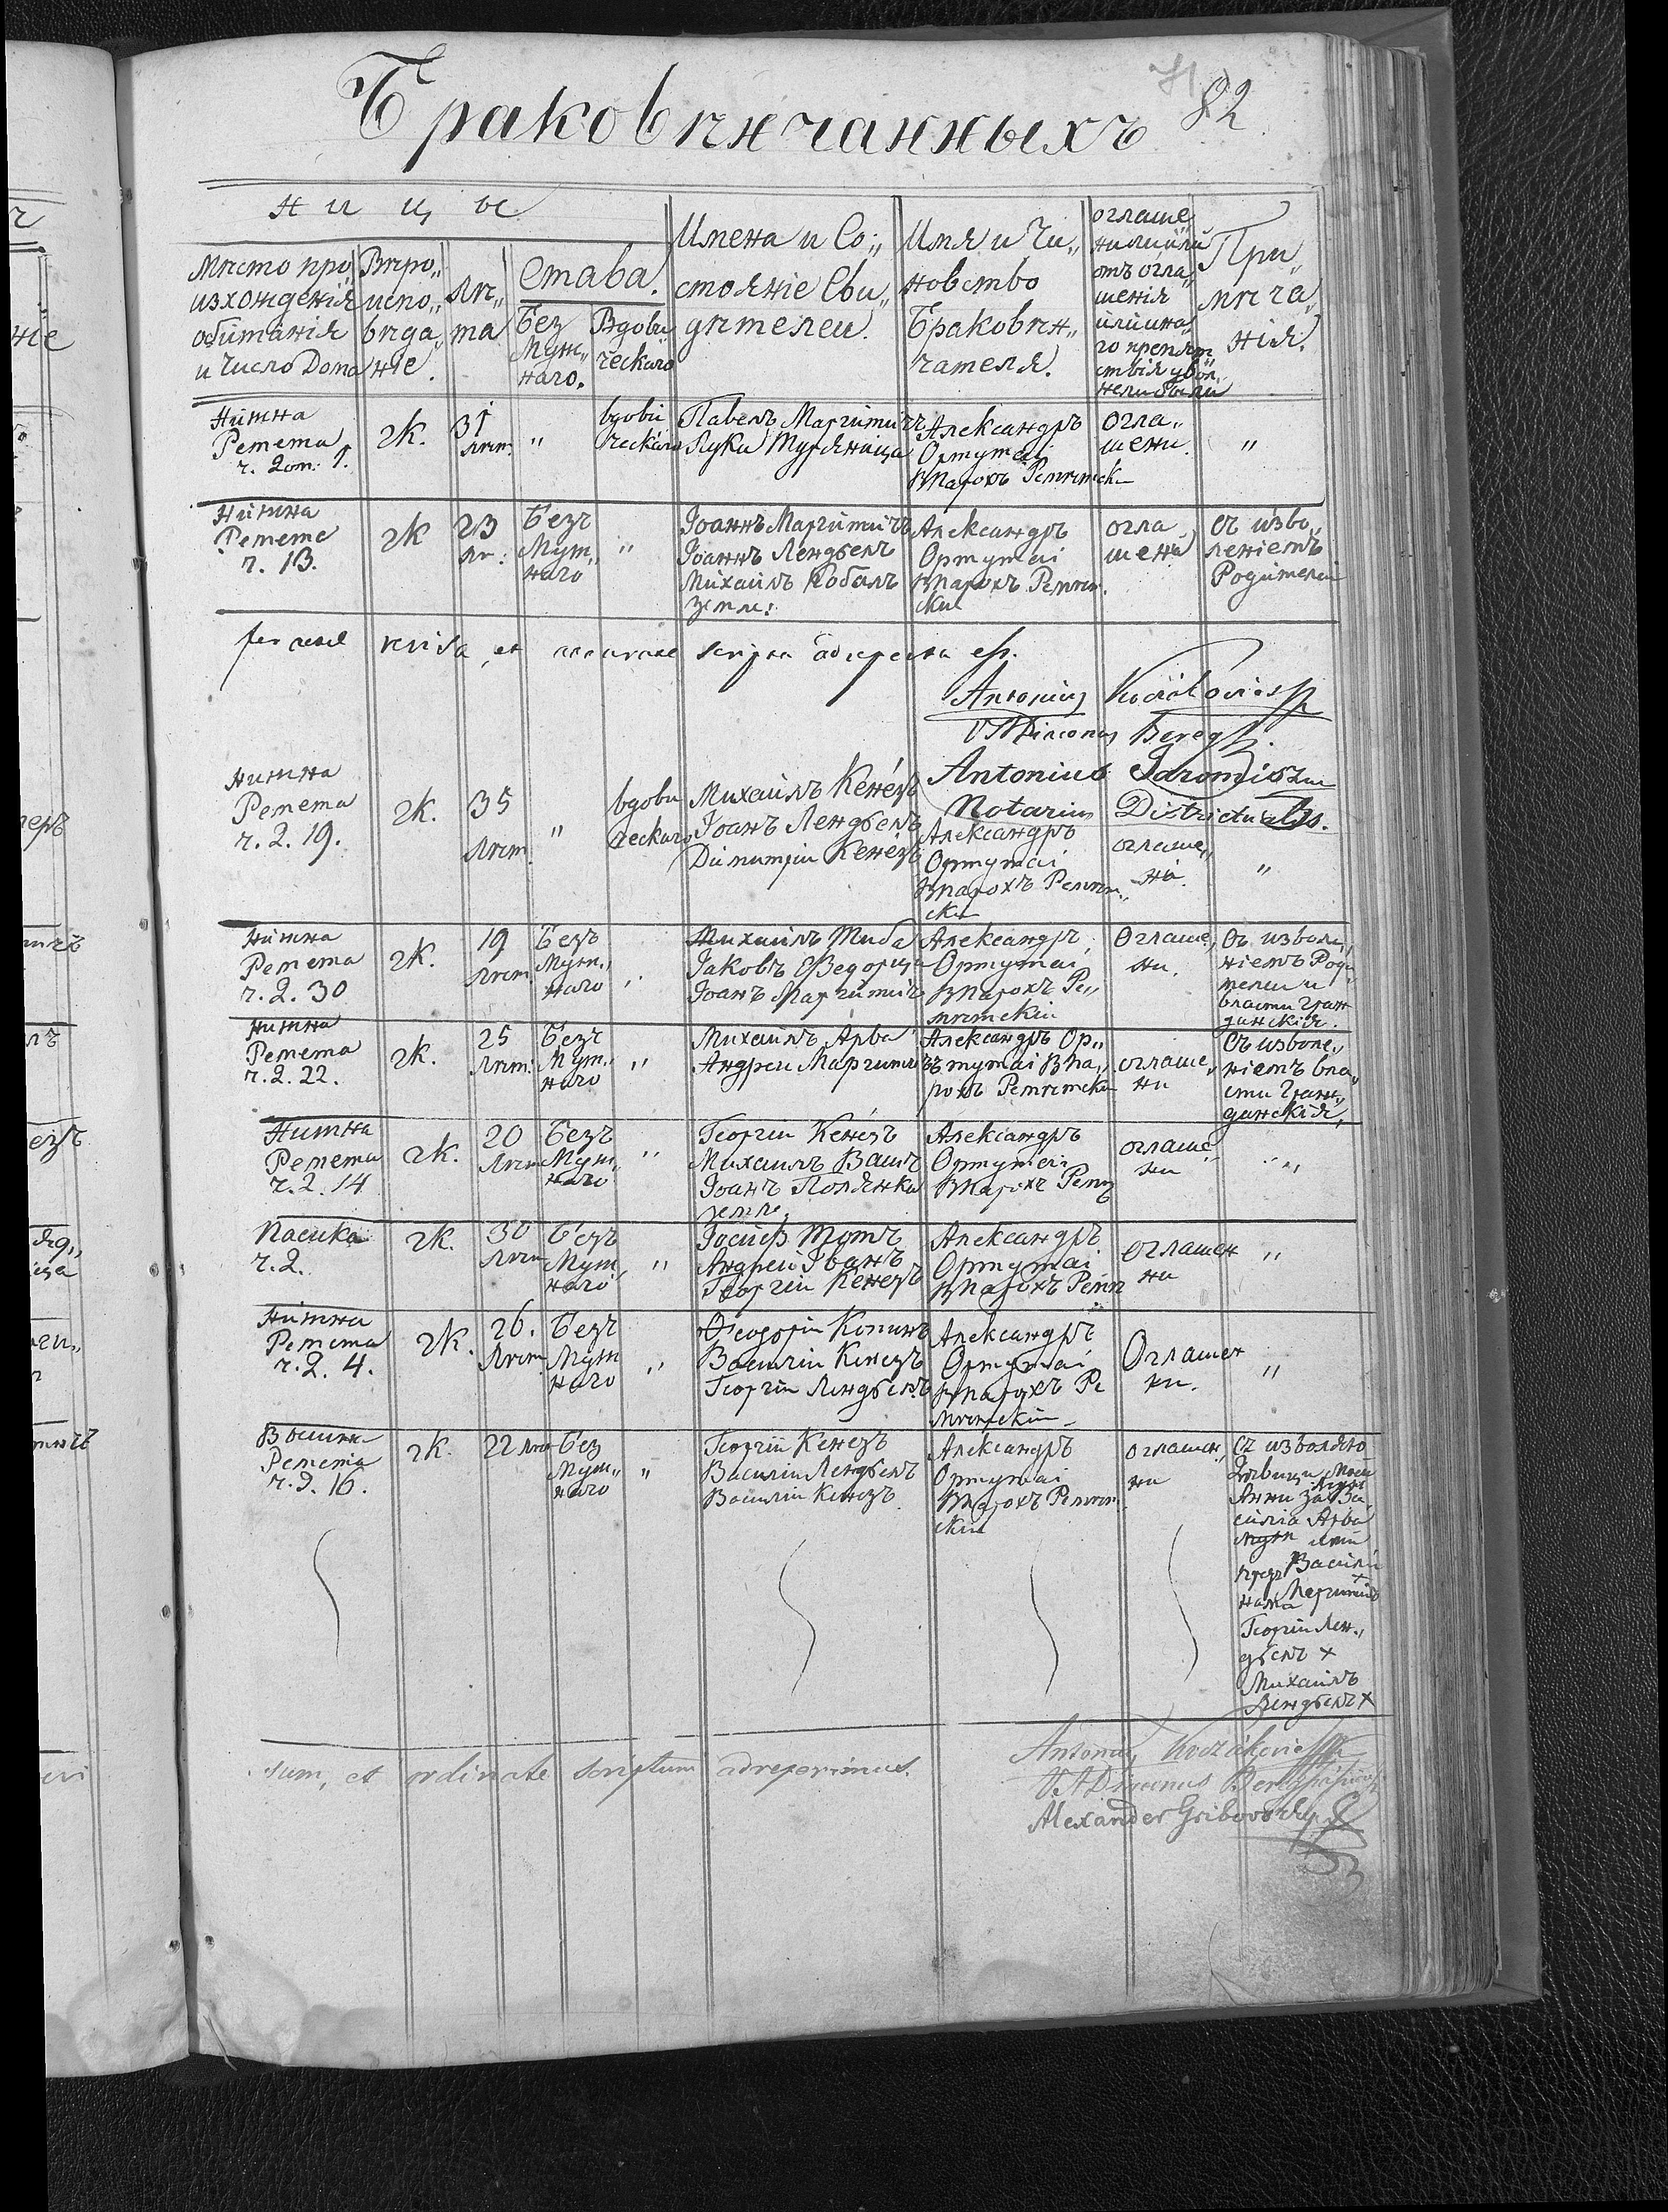 82
Браковѣнчанныхъ
н и ц ы
Мѣсто про„
изхожденія
обитанія
и Число Дома
Вѣро„
испо„
вѣда„
ніе.
Лѣ„
та
Става.
Без
Муж„
наго.
Вдови„
ческаго
Имена и Со„
стояніе Сви„
дѣтелей.
Имя и Чи„
новство
Браковѣн„
чателя.
оглаше„
отъ огла„
шенія
При„
мѣча„
нія.
Нижна
Ремета
ч. дом. 1.
гк.
31
лѣт.
„
вдови
ческаго
Павелъ Маргитичъ
Лука Туряница
Александръ
Ортутаі
ВПарохъ Реметскі
огла„
шени.
„
Нижна
Ремете
ч. 13.
гк
23
лѣ.
Безъ
Муж„
наго
„
Іоаннъ Маргитичъ
Іоаннъ Лендьелъ
Михаилъ Кобалъ
земле:
Александръ
Ортутаі
ВПарохъ Ремет.
скій
огла
шени
съ изво„
леніемъ
Родителей
revisa, et accurate scripta adreperta esse.
Antonius
VADiaconus Bereg
Antonius
Notarius Districtualis.
Нижна
Ремета
ч. д. 19.
гк.
35
лѣт.
„
вдови
ческаго
Михаилъ Кенézъ
Іоанъ Лендьелъ
Димитрій Кенéзъ
Александръ
Ортутаі
ВПарохъ Ремет„
скі
оглаше„
ни.
„
Нижна
Ремета
ч. д. 30
гк.
19
лѣт.
Безъ
Муж„
наго
„
Михаилъ Тиба
Іаковъ Ѳедорца
Іоанъ Маргитичъ
Александръ
Ортутаі
ВПарохъ Ре„
метскій
Оглаше„
ни.
Съ изволе„
ніемъ Роди
телей и
власти граж
данскія.
Нижна
Ремета
ч. д. 22.
гк.
25
лѣт.
Безъ
Муж„
наго
„
Михаилъ Арва
Андрей Маргитичъ
Александръ Ор„
тутаі ВПа„
рохъ Реметскі
оглаше„
ни
Съ изволе„
ніемъ вла„
сти Граж„
данскія,
Нижна
Ремета
ч. д. 14
гк.
20
лѣт
Безъ
Муж„
наго
„
Георгій Кенéзъ
Михаилъ Вашъ
Іоанъ Полянка
земле.
Александръ
Ортутаі
ВПарохъ Реме
оглаше„
ни
„
Пасика
ч. 2.
гк.
30
лѣт
Безъ
Муж„
наго
„
Іосифъ Тутъ
Андрей Іванъ
Георгій Кенезъ
Александръ
Ортутаі
ВПарохъ Реме
оглашен
ни
„
Нижна
Ремета
ч. д. 4.
гк.
26.
лѣт
Безъ
Муж
наго
„
Ѳеодорій Копинъ
Василій Кенезъ
Георгій Лендьелъ
Александръ
Ортутаі
ВПарохъ Ре
метскій
Оглашен
ни.
„
Вышна
Ремета
ч. д. 16.
гк.
22 лѣт
Без
Муж„
наго
„
Георгій Кенезъ
Василій Лендьелъ
Василій Кенезъ
Александръ
Ортутаі
ВПарохъ Ремет.
скій
оглашен„
ни
Анни за Ва
силіа Арва
Василій
Маргитичъ
Георгій Лен„
дьелъ +
Михаилъ
Лендьелъ +
sum, et ordinate scriptum adreperimus.
Antonius
VADiaconus
Alexander Gribovszky